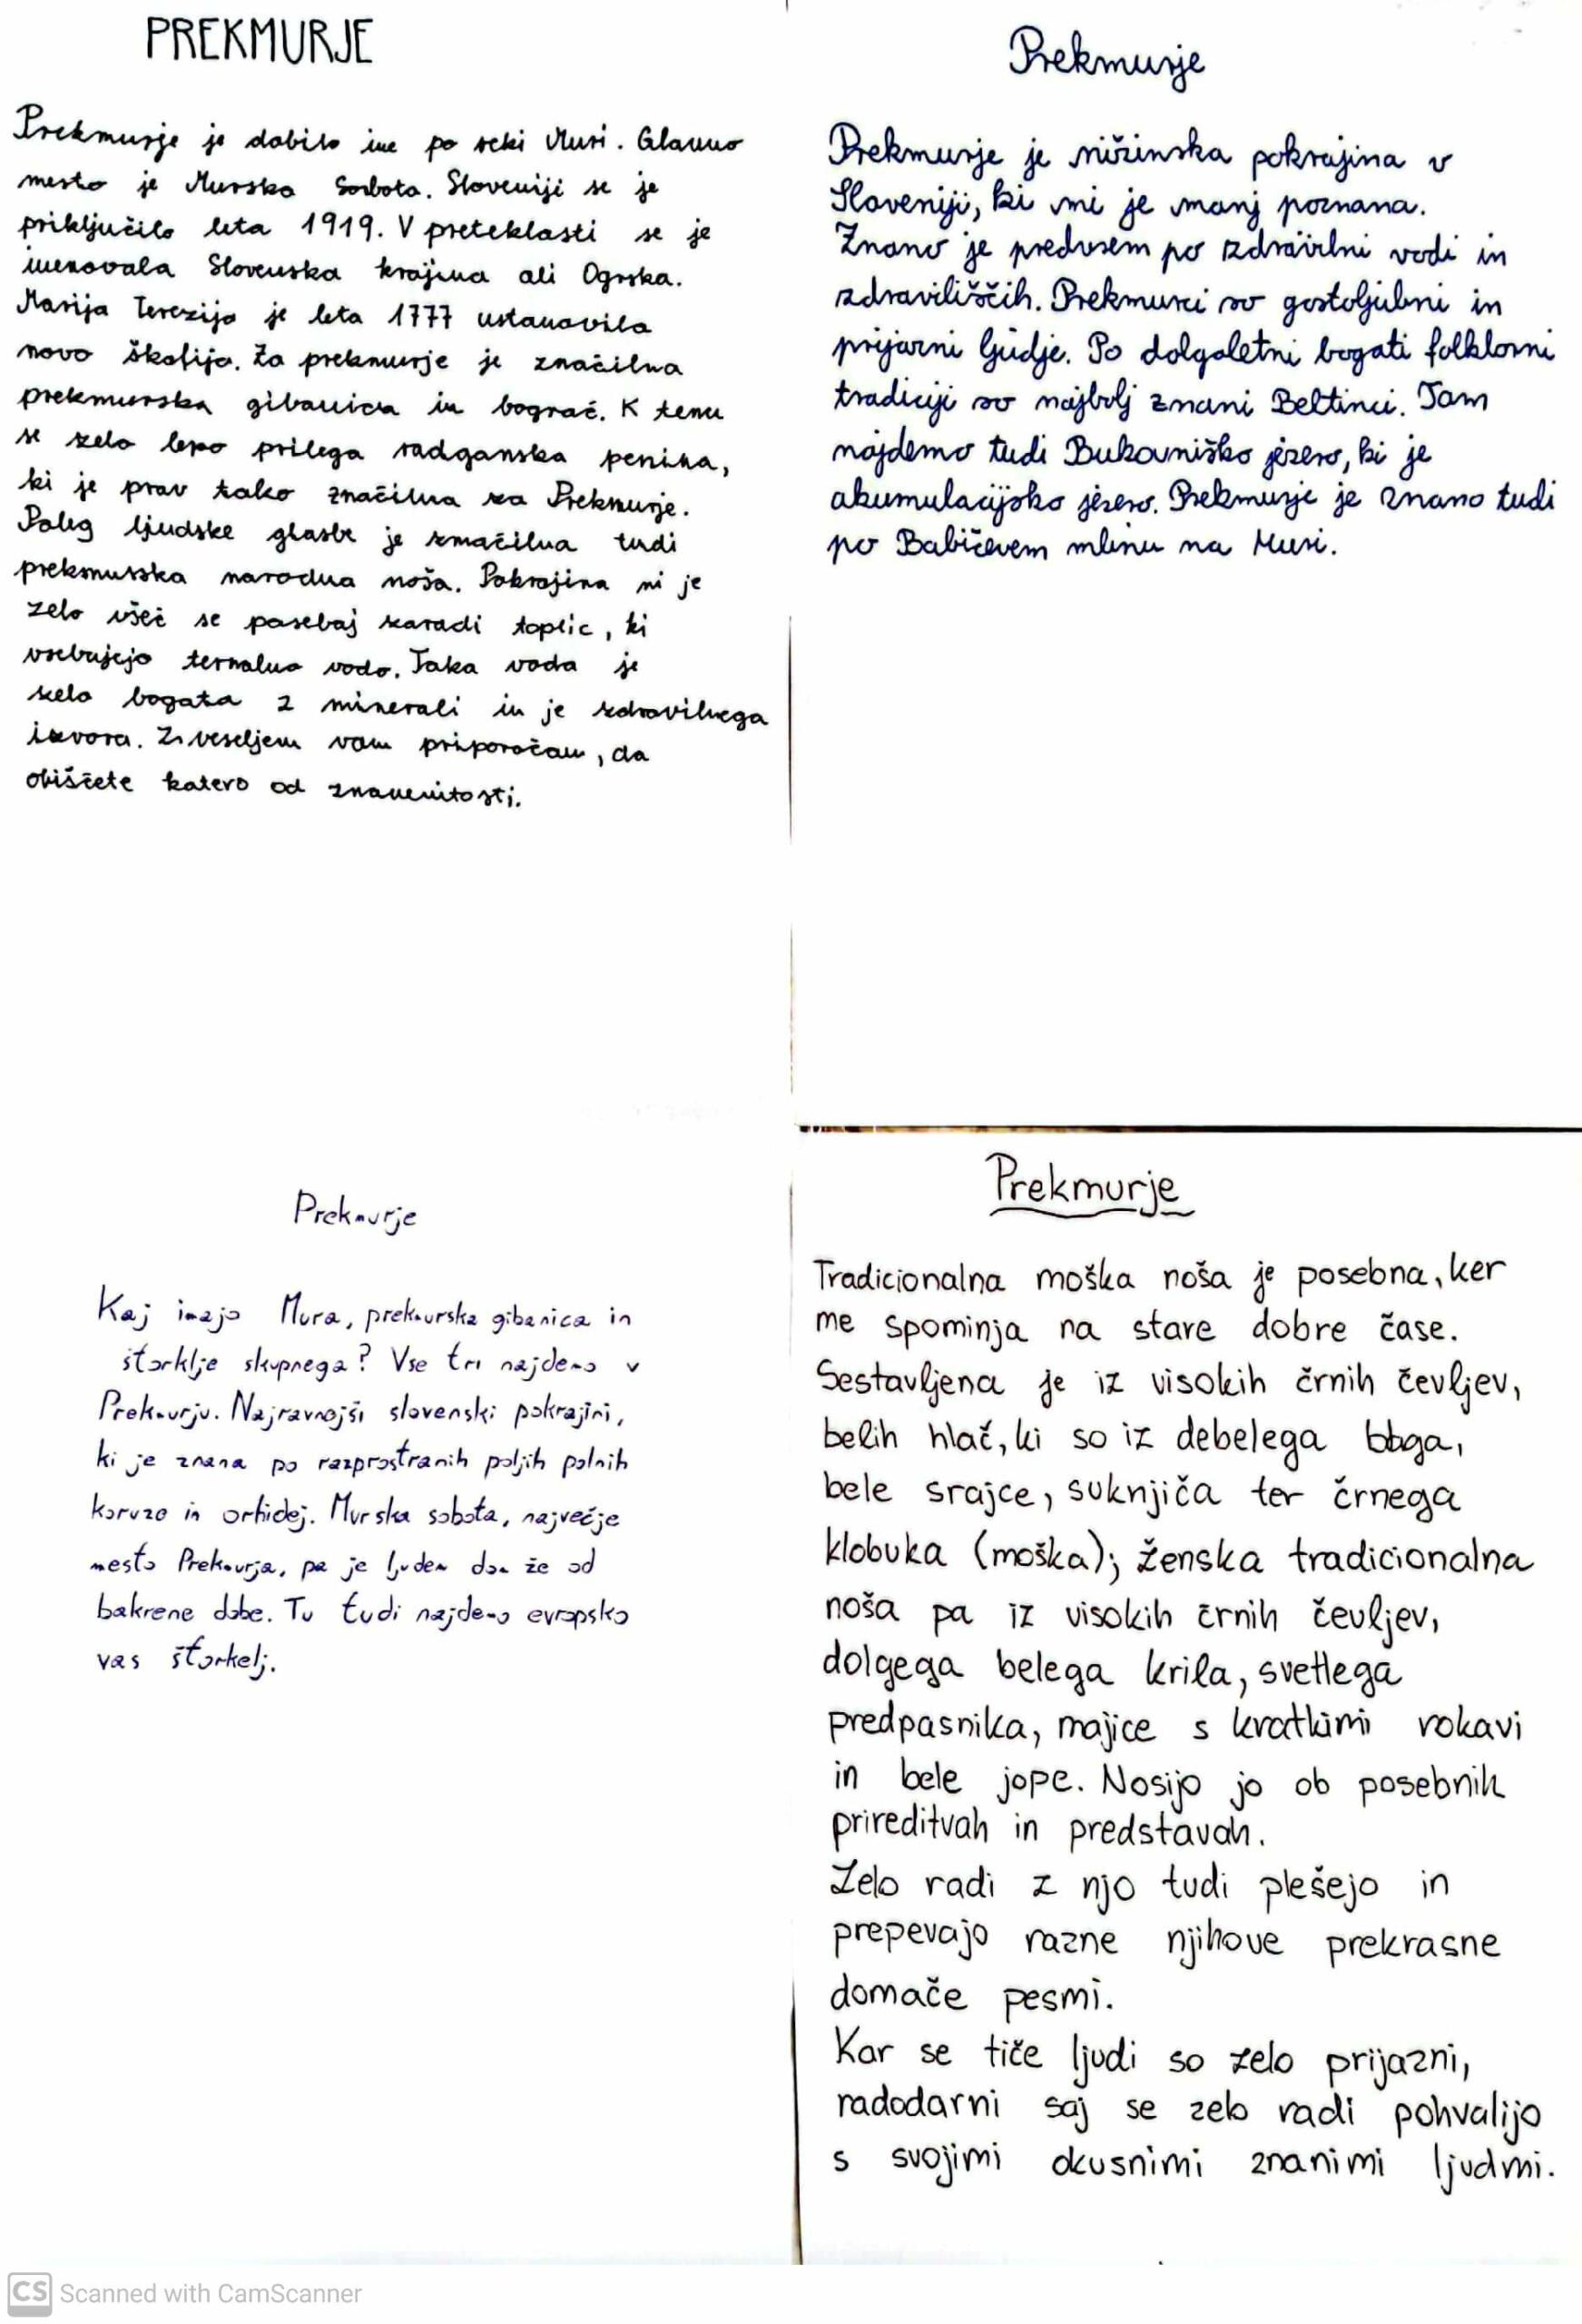 PREKMURJE
Prekmurje je dobilo ime po reki Muri. Glavno
mesto je Murska Sobota. Sloveniji se je
priključilo leta 1919. V preteklasti se je
imenovala Slovenska krajina ali Ogrska.
Marija Terezija je leta 1777 ustanovila
novo škofijo. Za prekmurje je značilna
prekmurska gibanica in bograč. K temu
se zelo lepo prilega radganska penina,
ki je prav tako značilna za Prekmurje.
Poleg ljudske glasbe je značilna tudi
prekmurska narodna noša. Pokrajina mi je
zelo všeč še posebaj zaradi toplic, ki
vsebujejo termalno vodo. Taka voda je
zelo bogata z minerali in je zdravilnega
izvora. Z veseljem vam priporočam, da
obiščete katero od znamenitosti.
Prekmurje
Prekmurje je nižinska pokrajina v
Sloveniji, ki mi je manj poznana.
Znano je predvsem po zdravilni vodi in
zdraviliščih. Prekmurci so gostoljubni in
prijazni ljudje. Po dolgoletni bogati folklorni
tradiciji so najbolj znani Beltinci. Tam
najdemo tudi Bukovniško jezero, ki je
akumulacijsko jezero. Prekmurje je znano tudi
po Babičevem mlinu na Muri.
Prekmurje
Kaj imajo Mura, prekmurska gibanica in
štorklje skupnega? Vse tri najdemo v
Prekmurju. Najravnejši slovenski pokrajini,
ki je znana po razprostranih poljih polnih
koruze in orhidej. Murska sobota, največje
mesto Prekmurja, pa je ljudem dom že od
bakrene dobe. Tu tudi najdemo evropsko
vas štorkelj.
Prekmurje
Tradicionalna moška noša je posebna, ker
me spominja na stare dobre čase.
Sestavljena je iz visokih črnih čevljev,
belih hlač, ki so iz debelega
bele srajce, suknjiča ter črnega
klobuka (moška); ženska tradicionalna
noša pa iz visokih črnih čevljev,
dolgega belega krila, svetlega
predpasnika, majice s kratkimi rokavi
in bele jope. Nosijo jo ob posebnih
prireditvah in predstavah.
Zelo radi z njo tudi plešejo in
prepevajo razne njihove prekrasne
domače pesmi.
Kar se tiče ljudi so zelo prijazni,
radodarni saj se zelo radi pohvalijo
s svojimi okusnimi znanimi ljudmi.
CS Scanned with CamScanner